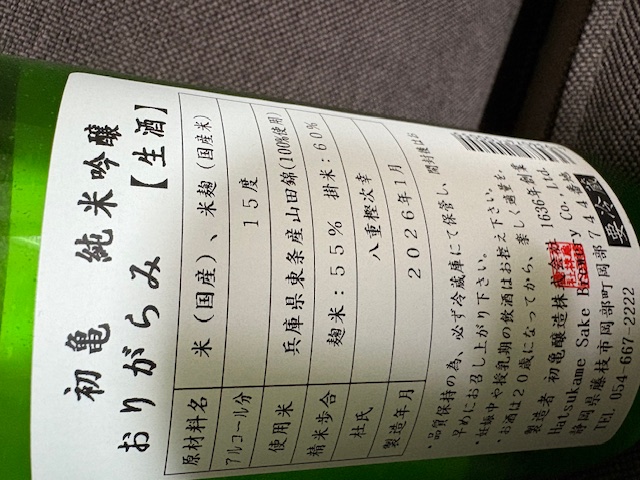 初亀 純米吟醸
おりがらみ【生酒】
原材料名 米(国産)、米麹(国産米)
アルコール分 15度
使用米 兵庫県東条産山田錦(100%使用)
精米歩合 麹米:55% 掛米:60%
杜氏 八重樫次幸
製造年月 2026年1月
・品質保持の為、必ず冷蔵庫にて保管し、開封後は
早めにお召し上がり下さい。
・妊娠中や授乳期の飲酒はお控え下さい。
・お酒は20歳になってから、楽しく適量を。
製造者 初亀醸造株式会社 1636年創業
Hatsukame Sake Brewery Co., Ltd
静岡県藤枝市岡部町岡部744番地
TEL 054-667-2222
要冷蔵